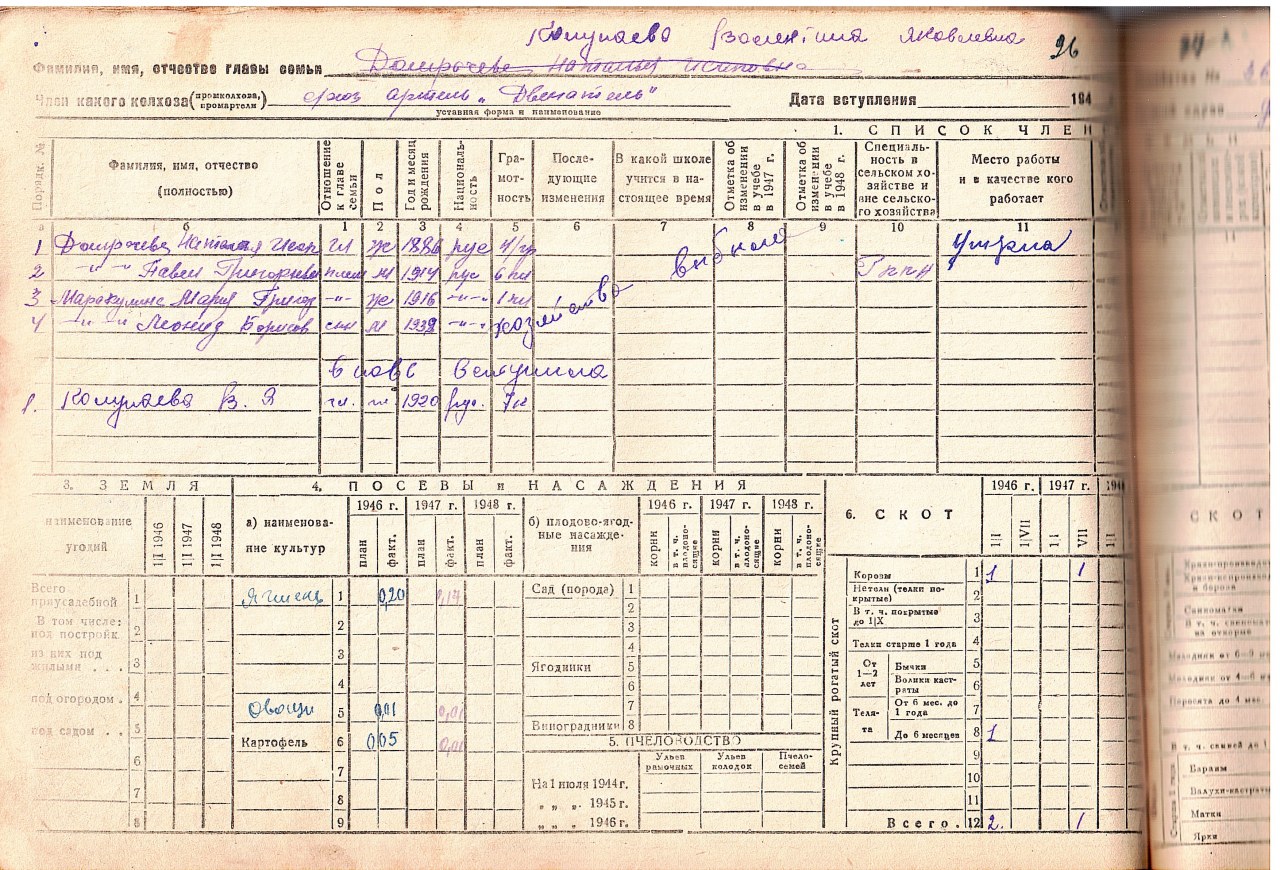 Колупаева Валентина Яковлевна 96
Фамилия, имя, отчество главы семьи Домрачева Наталья
Член какого колхоза (промколхоза, промартели) артель „Двигатель" Дата вступления 194
уставная форма и наименование
1. СПИСОК ЧЛЕН
Порядк. № Фамилия, имя, отчество (полностью) Отношение к главе семьи Пол Год и месяц рождения Национальность Грамотность Последующие изменения В какой школе учится в настоящее время Отметка об изменении в учебе в 1947 г. Отметка об изменении в учебе в 1948 г. Специальность в сельском хозяйстве и вне сельского хозяйства Место работы и в качестве кого работает
а б 1 2 3 4 5 6 7 8 9 10 11
1 Домрачева Наталья гл ж 1886 рус н/гр
2 -„- -„- Павел Григорьев плем м 1914 рус 6 кл
3 Маракулина Мария Григор -„- ж 1916 -„- 1 кл
4 -„- -„- Леонид Борисов сын м 1938 -„-
хозяйство выбыло
вновь вступила
1. Колупаева В. Я гл. ж 1920 рус. 7 кл
3. ЗЕМЛЯ
наименование угодий 1|I 1946 1|I 1947 1|I 1948
Всего приусадебной 1
В том числе: под постройк. 2
из них под жилыми . . . 3
под огородом . 4
под садом . . 5
6
7
8
4. ПОСЕВЫ и НАСАЖДЕНИЯ
а) наименование культур 1946 г. 1947 г. 1948 г.
план факт. план факт. план факт.
Ячмень 1 0,20 0,14
2
3
4
Овощи 5 0,01 0,01
Картофель 6 0,05
7
8
9
б) плодово-ягодные насаждения 1946 г. 1947 г. 1948 г.
корни в т. ч. плодоносящие корни в т. ч. плодоносящие корни в т. ч. плодоносящие
Сад (порода) 1
2
3
4
Ягодники 5
6
7
Виноградники 8
5. ПЧЕЛОВОДСТВО
Ульев рамочных Ульев колодок Пчелосемей
На 1 июля 1944 г.
„ „ „ 1945 г.
„ „ „ 1946 г.
6. СКОТ 1946 г. 1947 г. 194
1|I 1|VII 1|I VII 1|I
Крупный рогатый скот
Коровы 1 1 1
Нетели (телки покрытые) 2
В т. ч. покрытые до 1|IX 3
Телки старше 1 года 4
От 1—2 лет Бычки 5
Волики кастраты 6
Телята От 6 мес. до 1 года 7
До 6 месяцев 8 1
9
10
11
Всего. 12 2. 1
СКОТ
Свиноматки
Поросята до 4 мес.
Бараны
Валухи-кастраты
Матки
Ярки